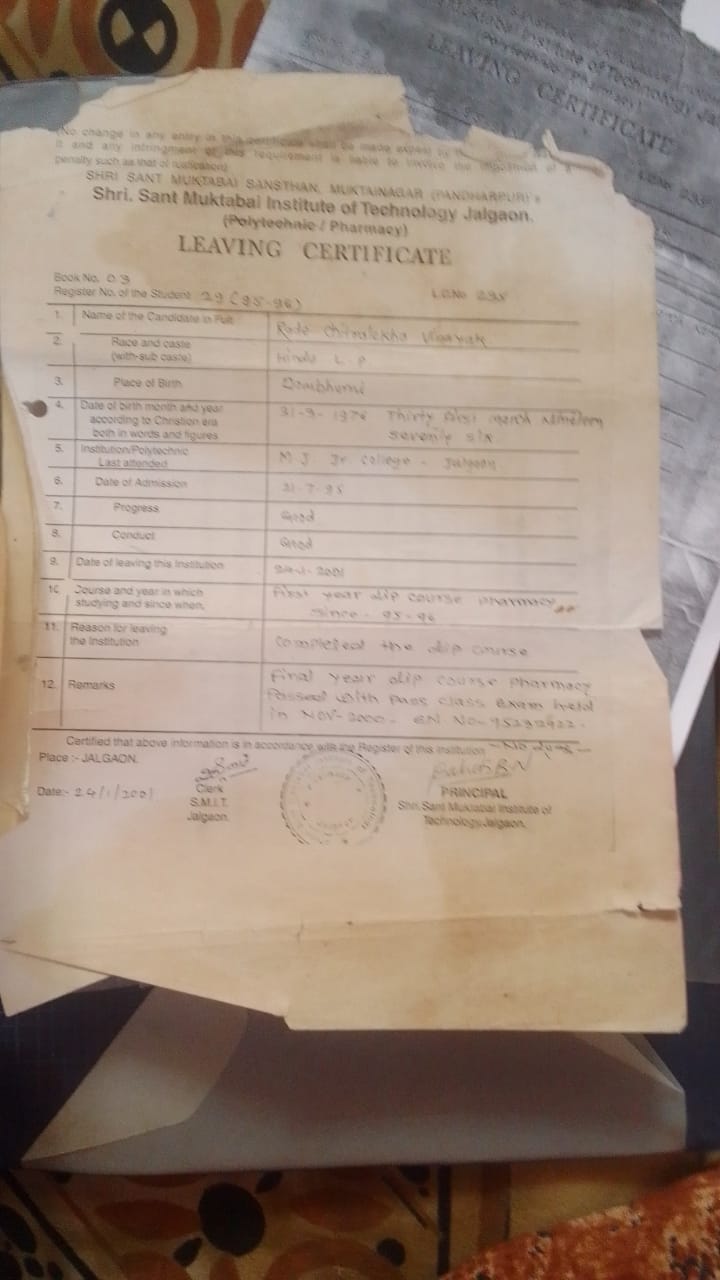 (No change in any entry in this certificate shall be made except by the
it and any infringment of this requirement is liable to involve the imposition of a
penalty such as that of rustication)
SHRI SANT MUKTABAI SANSTHAN, MUKTAINAGAR (PANDHARPUR)'s
Shri. Sant Muktabai Institute of Technology Jalgaon.
(Polytechnic / Pharmacy)
LEAVING CERTIFICATE
Book No. 03
Register No. of the Student 29 (95-96) L.C.No 235
1. Name of the Candidate in Full Rade Chitralekha Vinayak
2. Race and caste (with-sub caste) Hindu L. P.
3. Place of Birth Dombhurni
4. Date of birth month and year 31-3-1976 Thirty first march Nineteen
according to Christion era seventy six
both in words and figures
5. Institution/Polytechnic M. J. Jr. College - Jalgaon
Last attended
6. Date of Admission 21-7-95
7. Progress Good
8. Conduct Good
9. Date of leaving this Institution 24-1-2001
10. Course and year in which First year dip course pharmacy
studying and since when. since - 95-96
11. Reason for leaving Completed the dip course
the Institution
12. Remarks Final year dip course pharmacy
Passed with pass class exam held
in NOV-2000.
Certified that above information is in accordance with the Register of this institution
Place :- JALGAON.
Date:- 24/1/2001
Clerk
S.M.I.T.
Jalgaon.
PRINCIPAL
Shri. Sant Muktabai Institute of
Technology Jalgaon.
Institute of Technology
LEAVING CERTIFICATE